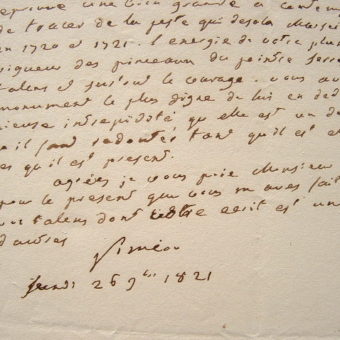 éprouve une bien grande a contemp
de tracer de la peste qui desola Marsei
en 1720 a 1721. l'energie de votre plum
vigueur des pinceaux du peintre serre
talens et surtout le courage. vous av
monument le plus digne de lui en ded
ieuse intrepidité qu elle est un de
il redoutée tant qu'il est e
es qu'il est present.
agrées je vous prie Monsieur
pour le present que vous m aves fait
talens dont votre ecrit est un
d'autres
Siméon
jeudi 26 9bre 1821